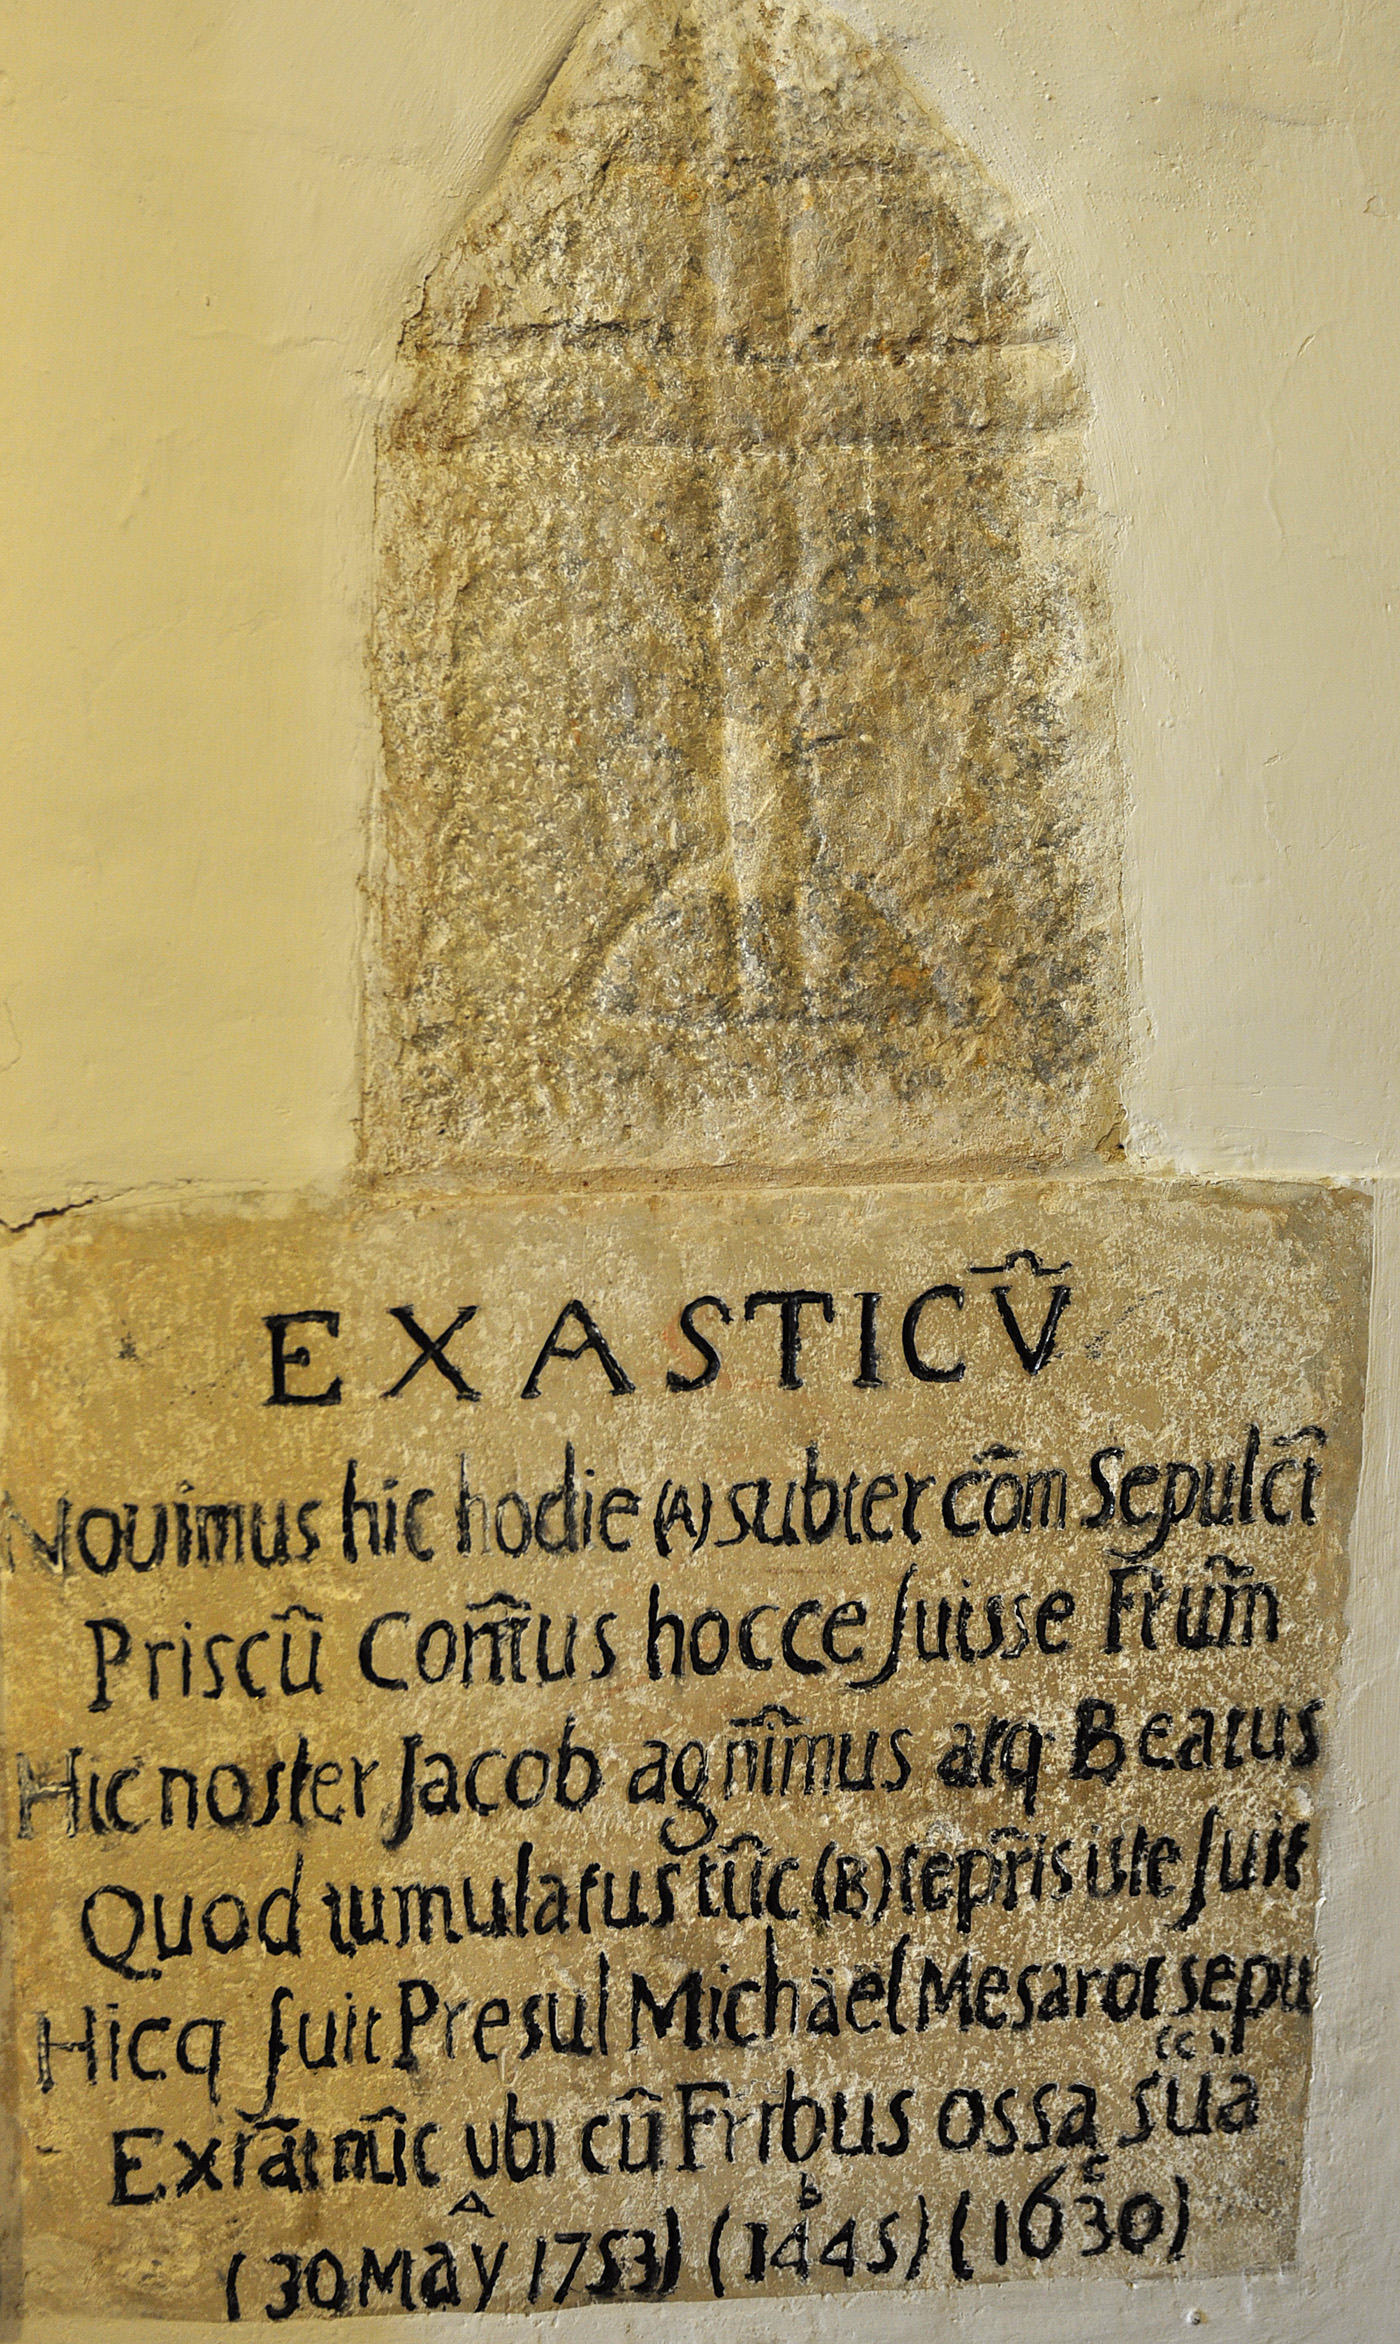 EXASTICŨ
Nouimus hic hodie (A) subter cõm Sepulcĩ
Priscũ Con̄tus hocce fuisse Frum̃
Hic noster Jacob agñĩmus atq Beatus
Quod tumulatus tũc (B) tepr̃is iste fuit
Hicq fuit Presul Michäel Mesarot sepu
(C)
Extãt nũc ubi cũ Frribus ossa süa
A b c
(30 Maÿ 1753) (1445) (1630)